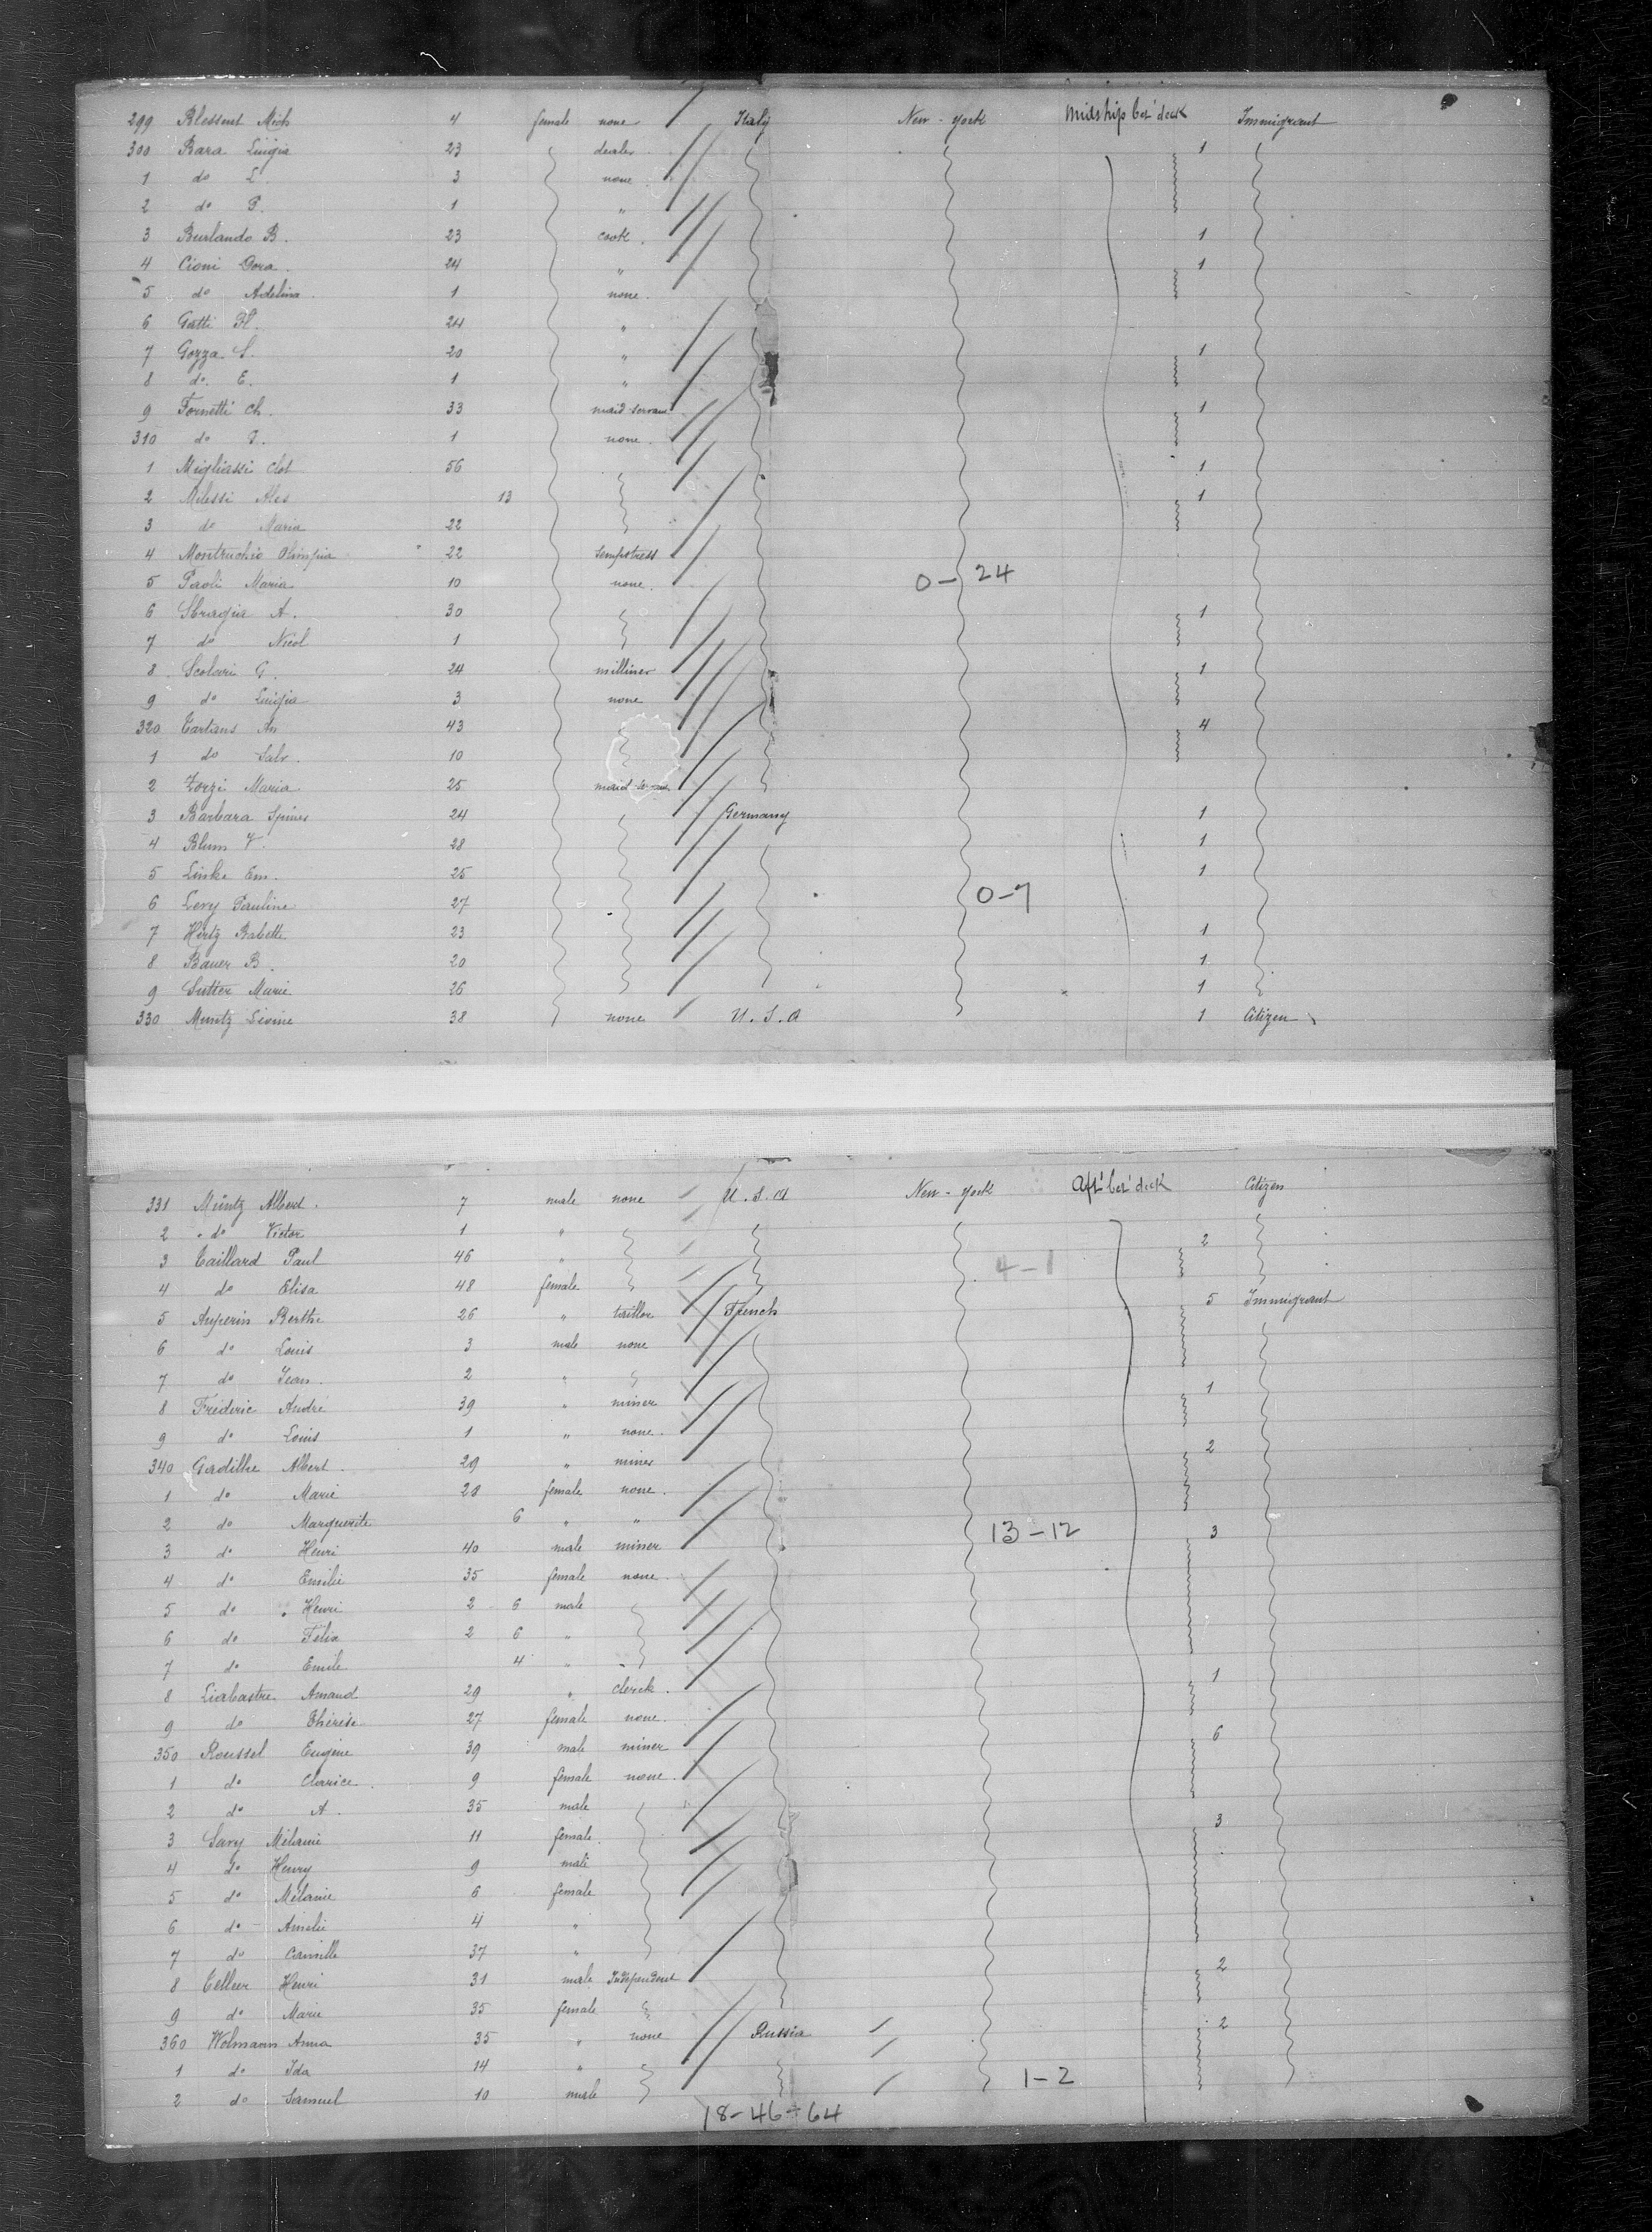 299 Blessent Mich 4 female none Italy New-York Midship bet' deck Immigrant
300 Bara Luigia 23 dealer 1
1 do L. 3 none
2 do P. 1 "
3 Burlando B. 23 cook 1
4 Cioni Dora 24 " 1
5 do Adelina 1 none
6 Gatti Fl. 24 "
7 Gozza S. 20 " 1
8 do E. 1 "
9 Fornetti Ch. 33 maid servant 1
310 do 1 none
1 Migliassi Clot 56 1
2 Milessi Ales 13 1
3 do Maria 22
4 Montruchio Olimpia 22 sempstress
5 Paoli Maria 10 none 0-24
6 Sbragia A. 30 1
7 do Nicol 1
8 Scolari G. 24 milliner 1
9 do Luigia 3 none
320 Tartans An 43 4
1 do Salv. 10
2 Zorzi Maria 25 maid
3 Barbara Spines 24 Germany 1
4 Blum V. 28 1
5 Linke Em. 25 1
6 Levy Pauline 27 0-7
7 Hertz Babette 23 1
8 Bauer B. 20 1
9 Sutter Marie 26 1
330 Muntz Livine 38 none U.S.A 1 Citizen
331 Müntz Albert. 7 male none U.S.A New-York Aft' bet' deck Citizen
2 do Victor 1 " 2
3 Taillard Paul 46 " 4-1
4 do Elisa 48 female
5 Auperin Berthe 26 " taillor French 5 Immigrant
6 do Louis 3 male none
7 do Jean 2 "
8 Fréderic André 39 " miner 1
9 do Louis 1 " none
340 Gadilhe Albert 29 " miner 2
1 do Marie 28 female none
2 do Marguerite 6 " "
3 do Henri 40 male miner 13-12 3
4 do Emilie 35 female none
5 do Henri 2 6 male
6 do Felix 2 6 "
7 do Emile 4 "
8 Liabastre Amand 29 " clerck 1
9 do Thérèse 27 female none
350 Roussel Eugène 39 male miner 6
1 do Clarice 9 female none
2 do A. 35 male
3 Sary Mélanie 11 female 3
4 do Henry 9 male
5 do Mélanie 6 female
6 do Amelie 4 "
7 do Camille 37 "
8 Tellier Henri 31 male Independent 2
9 do Marie 35 female
360 Wolmann Anna 35 " none Russia 2
1 do Ida 14 " 1-2
2 do Samuel 10 male
18-46-64